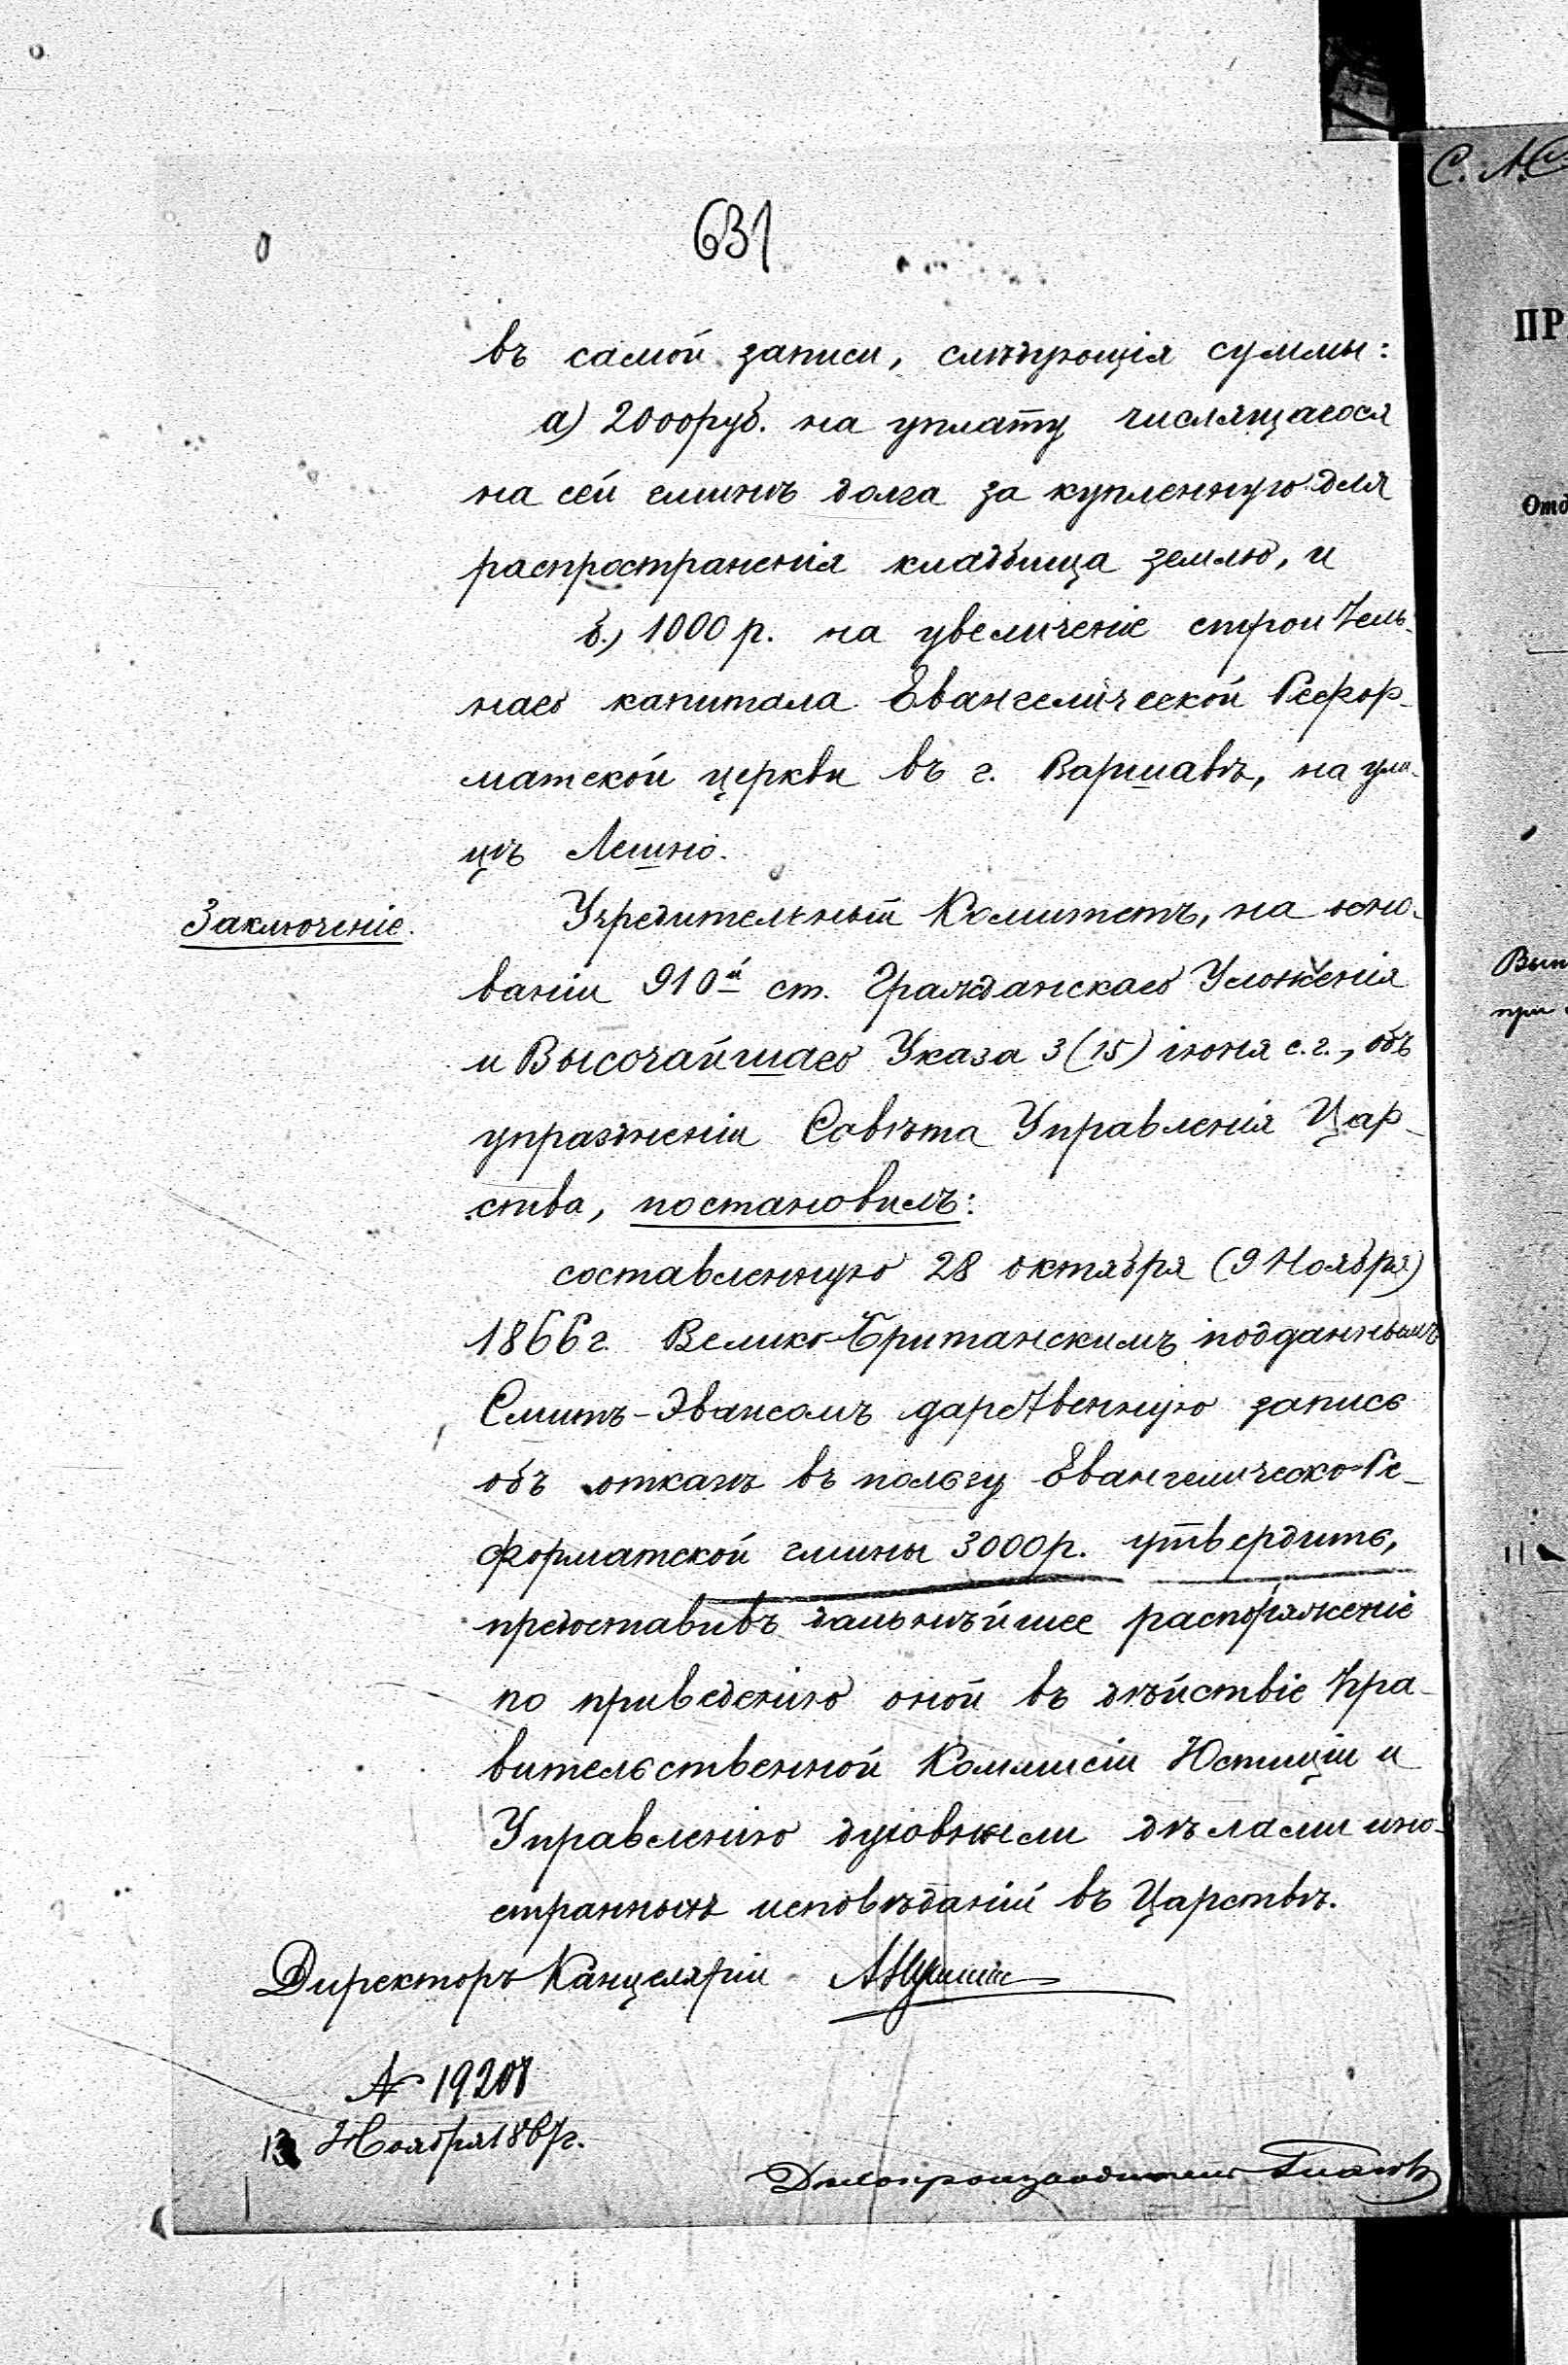 631
въ самой записи, слѣдующія суммы:
а) 2000 руб. на уплату числящагося
на сей гминѣ долга за купленную для
распространенія кладбища землю, и
б.) 1000 р. на увеличеніе строитель-
наго капитала Евангелической Рефор-
матской церкви въ г. Варшавѣ, на ули-
цѣ Лешно.
Заключеніе.
Учредительный Комитетъ, на осно-
ваніи 910й ст. Гражданскаго Уложенія
и Высочайшаго Указа 3 (15) іюня с. г., объ
упраздненіи Совѣта Управленія Цар-
ства, постановилъ:
составленную 28 октября (9 Ноября)
1866 г. Велико-Британскимъ подданнымъ
Смитъ-Эвансомъ дарственную запись
объ отказѣ въ пользу Евангелическо-Ре-
форматской гмины 3000 р. утвердить,
предоставивъ дальнѣйшее распоряженіе
по приведенію оной въ дѣйствіе Пра-
вительственной Коммисіи Юстиціи и
Управленію духовными дѣлами ино-
странныхъ исповѣданій въ Царствѣ.
Директоръ Канцеляріи
№ 19208
13 Ноября 1867 г.
Дѣлопроизводитель
С. А.
ПР
Отд
Вып
при